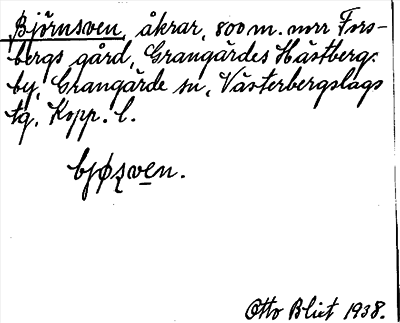 Björnsven, åkrar, 800 m. nrr Fors-
bergs gård, Grangärdes Hästberg.
by, Grangärde sn, Västerbergslags
tg, Kopp. l.
bjøsven.
Otto Blixt 1938.